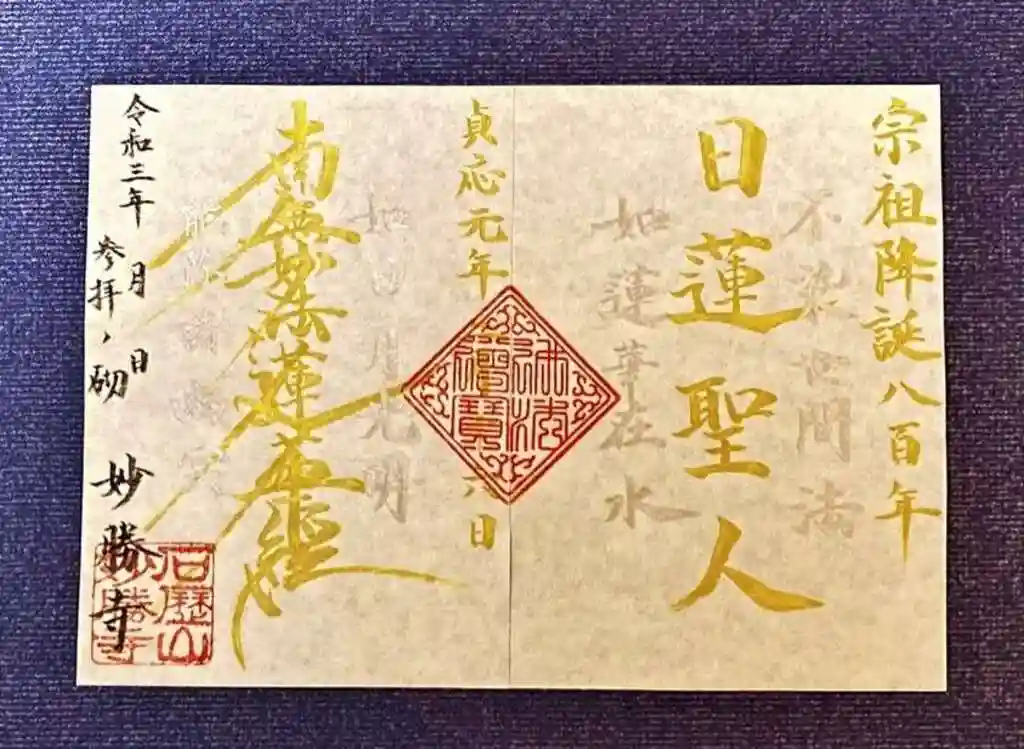 宗祖降誕八百年
不染世間法
日蓮聖人
如蓮華在水
貞応元年
六日
佛法僧寶
如日月光明
南無妙法蓮華経
令和三年 月 日
参拝ノ砌
妙勝寺
石歴山
妙勝寺